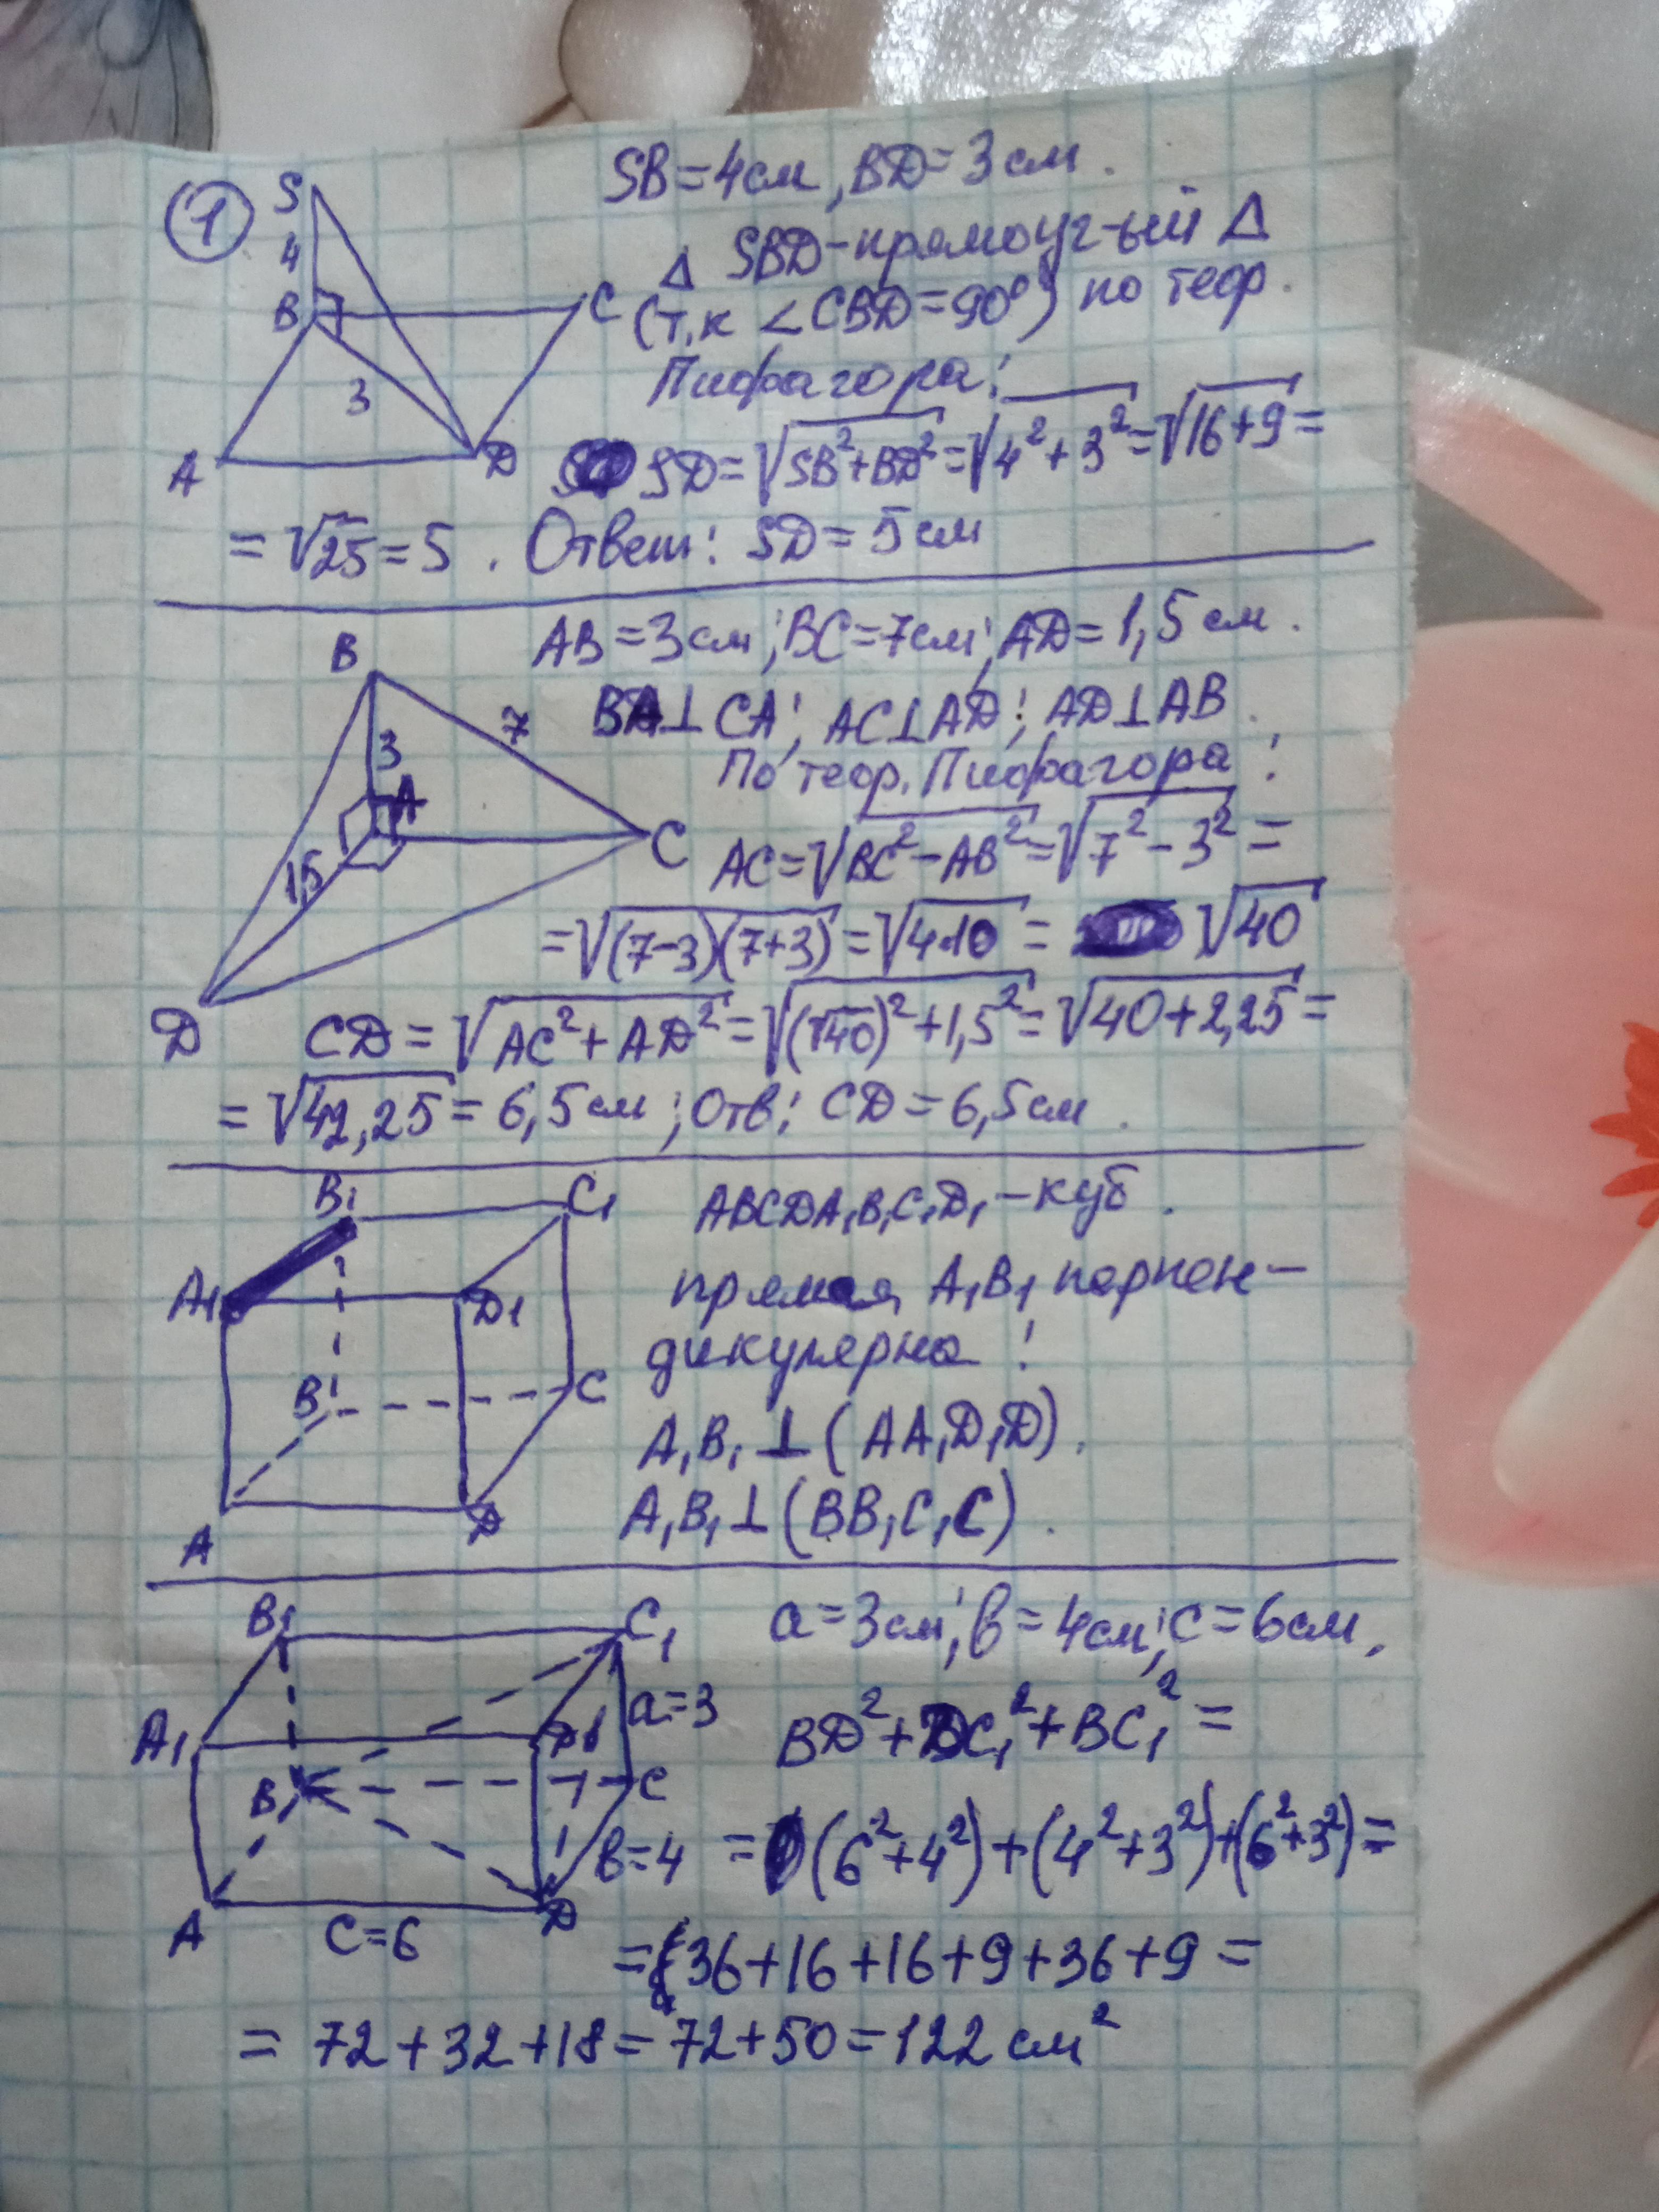 1
S
4
B
C
3
A
D
SB=4см, BD=3см.
Δ SBD-прямоуг-ый Δ
(т.к ∠CBD=90°) по теор.
Пифагора:
SD=√SB²+BD²=√4²+3²=√16+9=
=√25=5. Ответ: SD=5см
B
7
3
A
C
1,5
D
AB=3см; BC=7см; AD=1,5см.
BA⊥CA; AC⊥AD; AD⊥AB.
По теор. Пифагора:
AC=√BC²-AB²=√7²-3²=
=√(7-3)(7+3)=√4·10=√40
CD=√AC²+AD²=√(√40)²+1,5²=√40+2,25=
=√42,25=6,5см; Отв: CD=6,5см.
B₁
C₁
A₁
D₁
B
C
A
D
ABCDA₁B₁C₁D₁-куб.
прямая A₁B₁ перпен-
дикулярна:
A₁B₁⊥(AA₁D₁D).
A₁B₁⊥(BB₁C₁C).
B₁
C₁
a=3
A₁
D₁
B
C
в=4
A
c=6
D
a=3см; в=4см; c=6см,
BD²+DC₁²+BC₁²=
=(6²+4²)+(4²+3²)+(6²+3²)=
=36+16+16+9+36+9=
=72+32+18=72+50=122см²